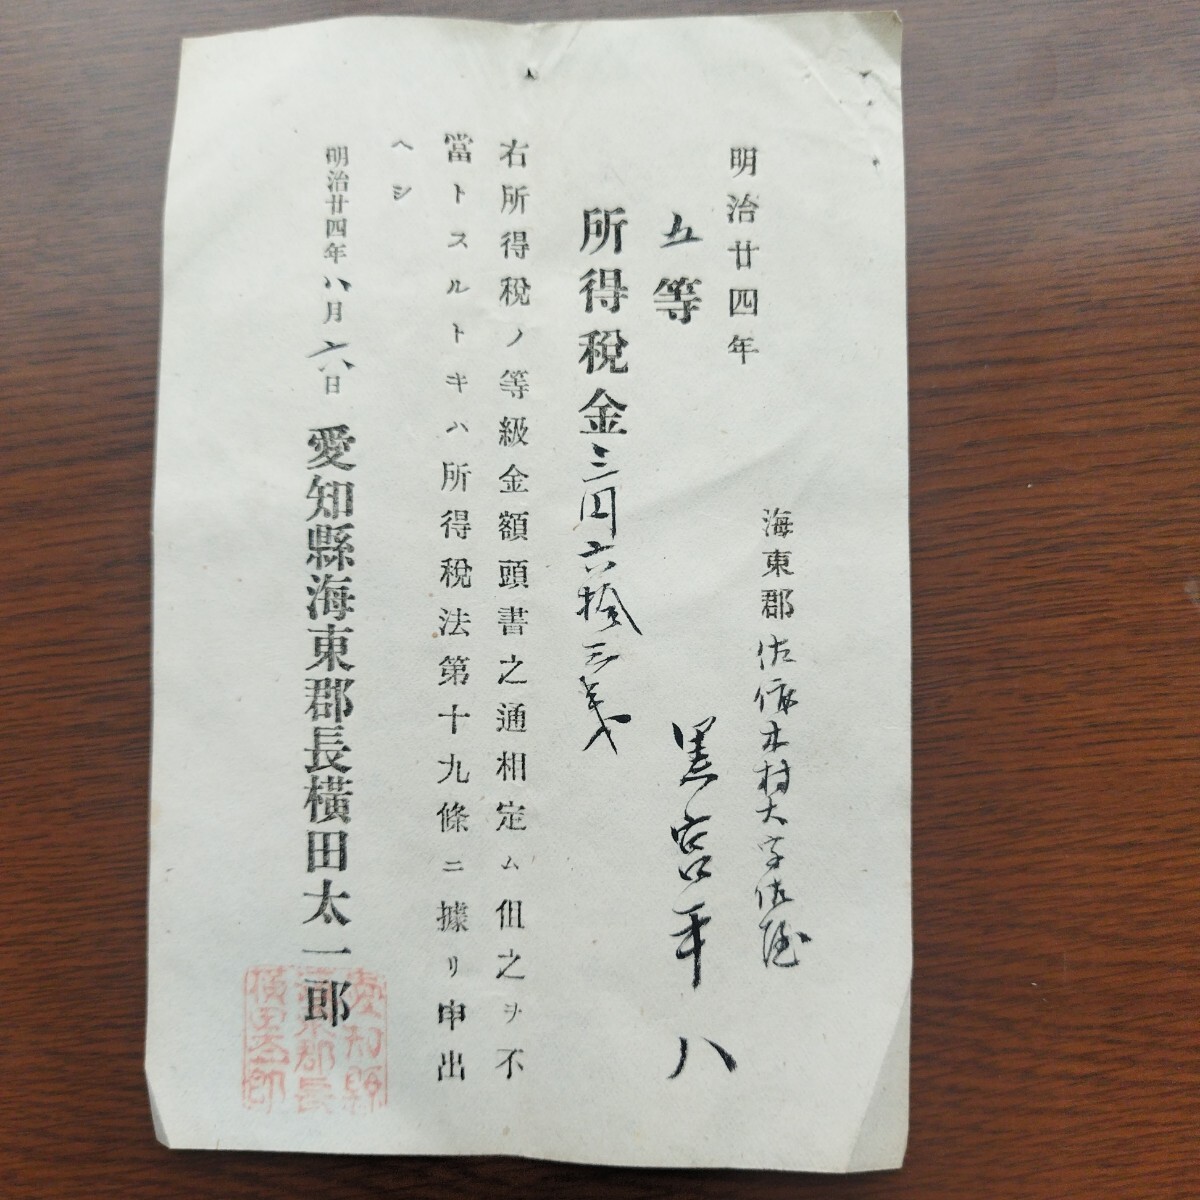 明治廿四年
海東郡佐依木村大字佐屋
五等
黒宮平八
所得税金三円六拾三銭
右所得税ノ等級金額頭書之通相定ム但之ヲ不
當トスルトキハ所得税法第十九條ニ據リ申出
ヘシ
明治廿四年八月六日
愛知縣海東郡長横田太一郎
愛知縣
海東郡長
横田太一郎